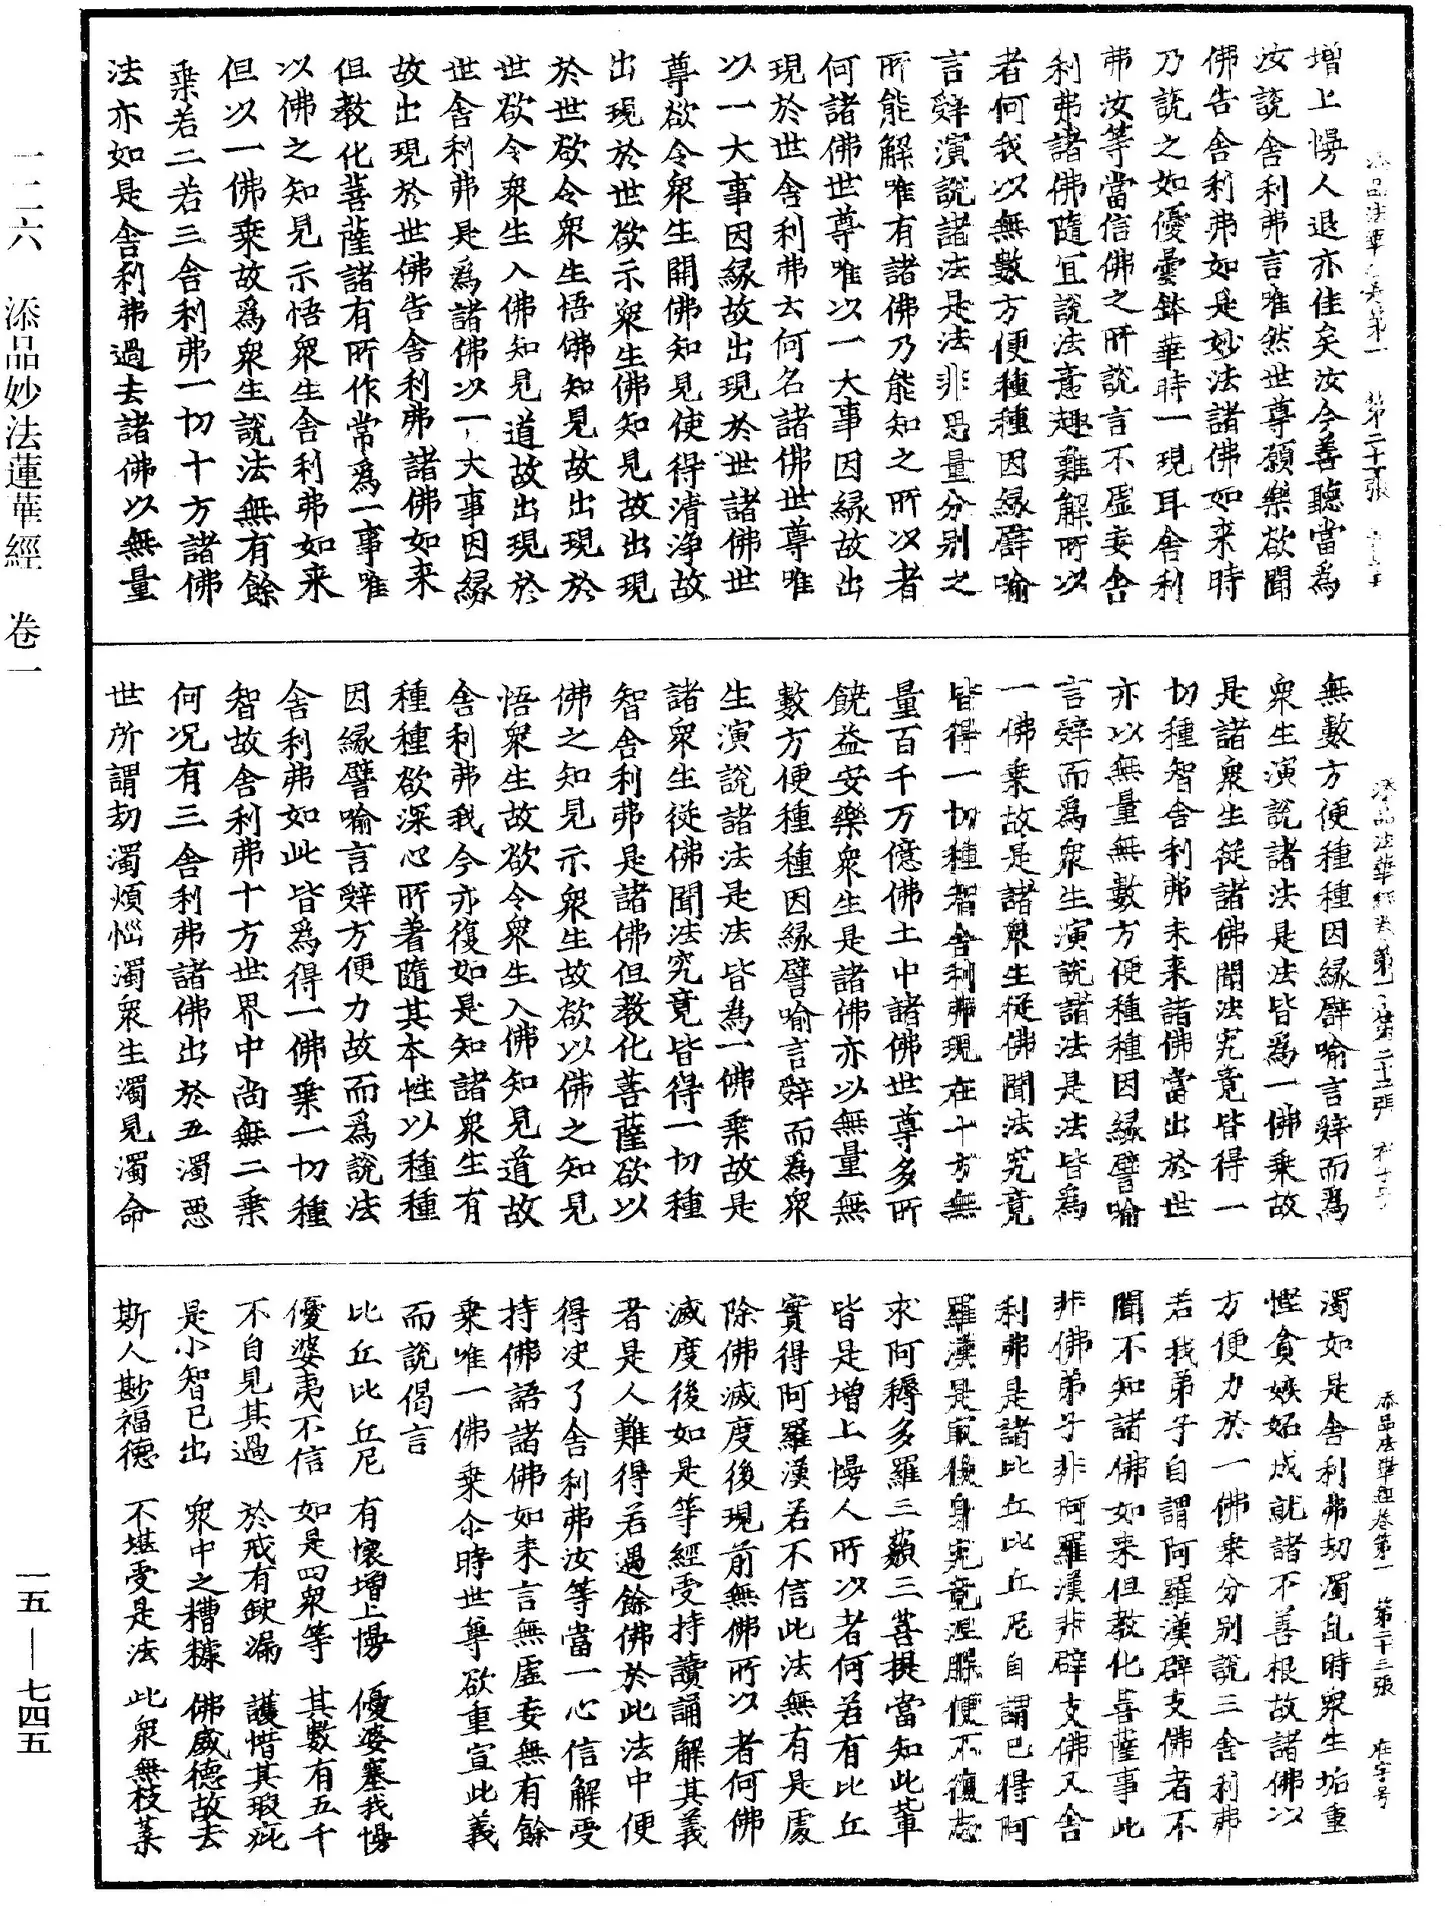 增上慢人退亦佳矣汝今善聽當爲
汝說舍利弗言唯然世尊願樂欲聞
佛告舍利弗如是妙法諸佛如來時
乃說之如優曇鉢華時一現耳舍利
弗汝等當信佛之所說言不虛妄舍
利弗諸佛隨宜說法意趣難解所以
者何我以無數方便種種因緣譬喻
言辭演說諸法是法非思量分別之
所能解唯有諸佛乃能知之所以者
何諸佛世尊唯以一大事因緣故出
現於世舍利弗云何名諸佛世尊唯
以一大事因緣故出現於世諸佛世
尊欲令衆生開佛知見使得清淨故
出現於世欲示衆生佛知見故出現
於世欲令衆生悟佛知見故出現於
世欲令衆生入佛知見道故出現於
世舍利弗是爲諸佛以一大事因緣
故出現於世佛告舍利弗諸佛如来
但教化菩薩諸有所作常爲一事唯
以佛之知見示悟衆生舍利弗如来
但以一佛乗故爲衆生說法無有餘
乗若二若三舍利弗一切十方諸佛
法亦如是舍利弗過去諸佛以無量
無數方便種種因緣譬喻言辭而爲
衆生演說諸法是法皆為一佛乗故
是諸衆生從諸佛聞法究竟皆得一
切種智舍利弗未来諸佛當出於世
亦以無量無數方便種種因緣譬喻
言辭而爲衆生演說諸法是法皆爲
一佛乗故是諸衆生從佛聞法究竟
皆得一切種智舍利弗現在十方無
量百千万億佛土中諸佛世尊多所
饒益安樂衆生是諸佛亦以無量無
數方便種種因緣譬喻言辭而為衆
生演說諸法是法皆為一佛乗故是
諸衆生從佛聞法究竟皆得一切種
智舍利弗是諸佛但教化菩薩欲以
佛之知見示衆生故欲以佛之知見
悟衆生故欲令衆生入佛知見道故
舍利弗我今亦復如是知諸衆生有
種種欲深心所著隨其本性以種種
因緣譬喻言辭方便力故而爲說法
舍利弗如此皆爲得一佛乗一切種
智故舍利弗十方世界中尚無二乗
何况有三舍利弗諸佛出於五濁惡
世所謂劫濁煩惱濁衆生濁見濁命
濁如是舍利弗劫濁亂時衆生垢重
慳貪嫉妬成就諸不善根故諸佛以
方便力於一佛乗分別說三舍利弗
若我弟子自謂阿羅漢辟支佛者不
聞不知諸佛如来但教化菩薩事此
非佛弟子非阿羅漢非辟支佛又舍
利弗是諸比丘比丘尼自謂已得阿
羅漢是最後身究竟涅槃便不復志
求阿耨多羅三藐三菩提當知此輩
皆是增上慢人所以者何若有比丘
實得阿羅漢若不信此法無有是處
除佛滅度後現前無佛所以者何佛
滅度後如是等經受持讀誦解其義
者是人難得若遇餘佛於此法中便
得决了舍利弗汝等當一心信解受
持佛語諸佛如来言無虛妄無有餘
乗唯一佛乗尒時世尊欲重宣此義
而說偈言
比丘比丘尼　有懷增上慢　優婆塞我慢
優婆夷不信　如是四衆等　其數有五千
不自見其過　於戒有缺漏　護惜其瑕疵
是小智已出　衆中之糟糠　佛威德故去
斯人尠福德　不堪受是法　此衆無枝葉
一二六　添品妙法蓮華經　卷一
一五—七四五